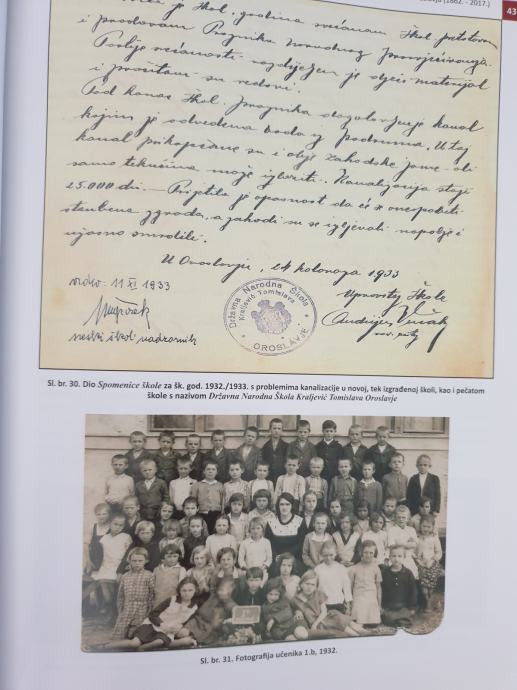 (1862. - 2017.)
43
je škol. godina svečanom škol. pretstavom
i proslavom Praznika narodnog prosvjećivanja.
Poslije svečanosti razdijeljen je dječji materijal
i pročitan su redovi.
Pod konac škol. praznika dogotovljen je kanal
kojim je odvedena voda iz podruma. U taj
kanal prikopčane su i obje zahodske jame ali
samo tekućina može izlaziti. Kanalizacija stoji
25.000 din. Prijetila je opasnost da će se onesposobiti
stambena zgrada, a zahodi su se izljevali napolje i
užasno smrdili.
U Oroslavju, 24 kolovoza 1933
Upravitelj škole
vidio: 11 XI 1933
sreski škol. nadzornik
Državna Narodna Škola
Kraljević Tomislava
OROSLAVJE
Sl. br. 30. Dio Spomenice škole za šk. god. 1932./1933. s problemima kanalizacije u novoj, tek izgrađenoj školi, kao i pečatom
škole s nazivom Državna Narodna Škola Kraljević Tomislava Oroslavje
Sl. br. 31. Fotografija učenika 1.b, 1932.